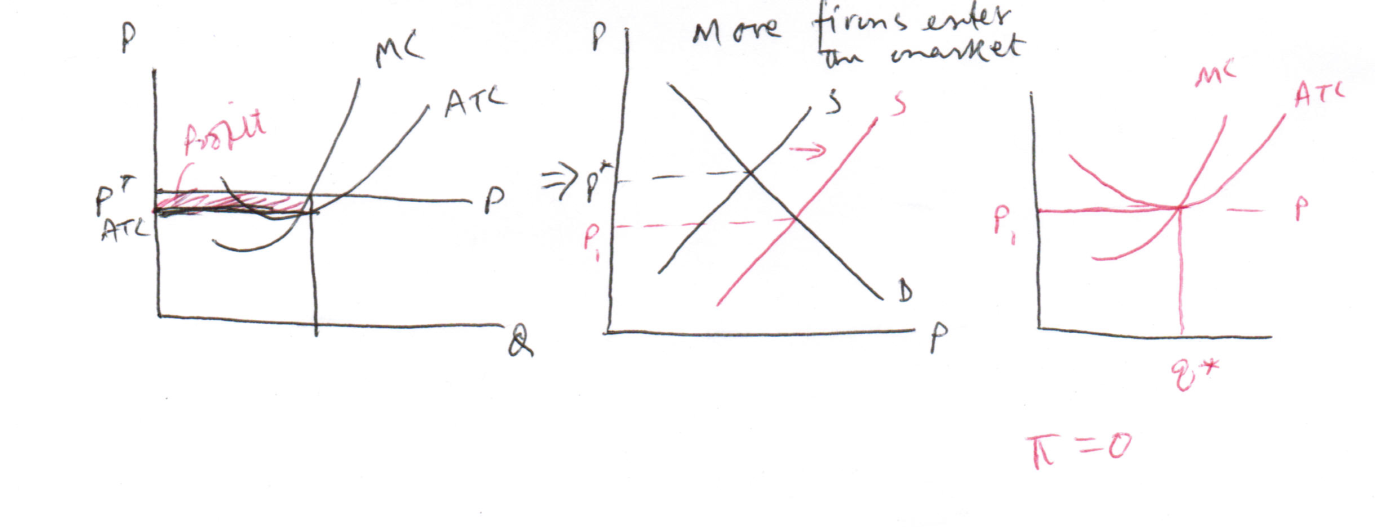 P
MC
ATC
Profit
P*
ATC
P
Q
⇒
P
More firms enter
market
S
S
P*
P₁
D
P
MC
ATC
P₁
P
q*
π = 0